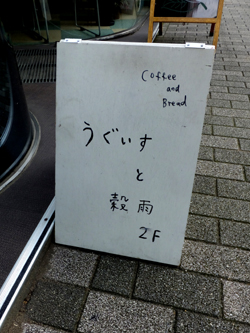 Coffee
and
Bread
うぐいす
と
穀雨
2F